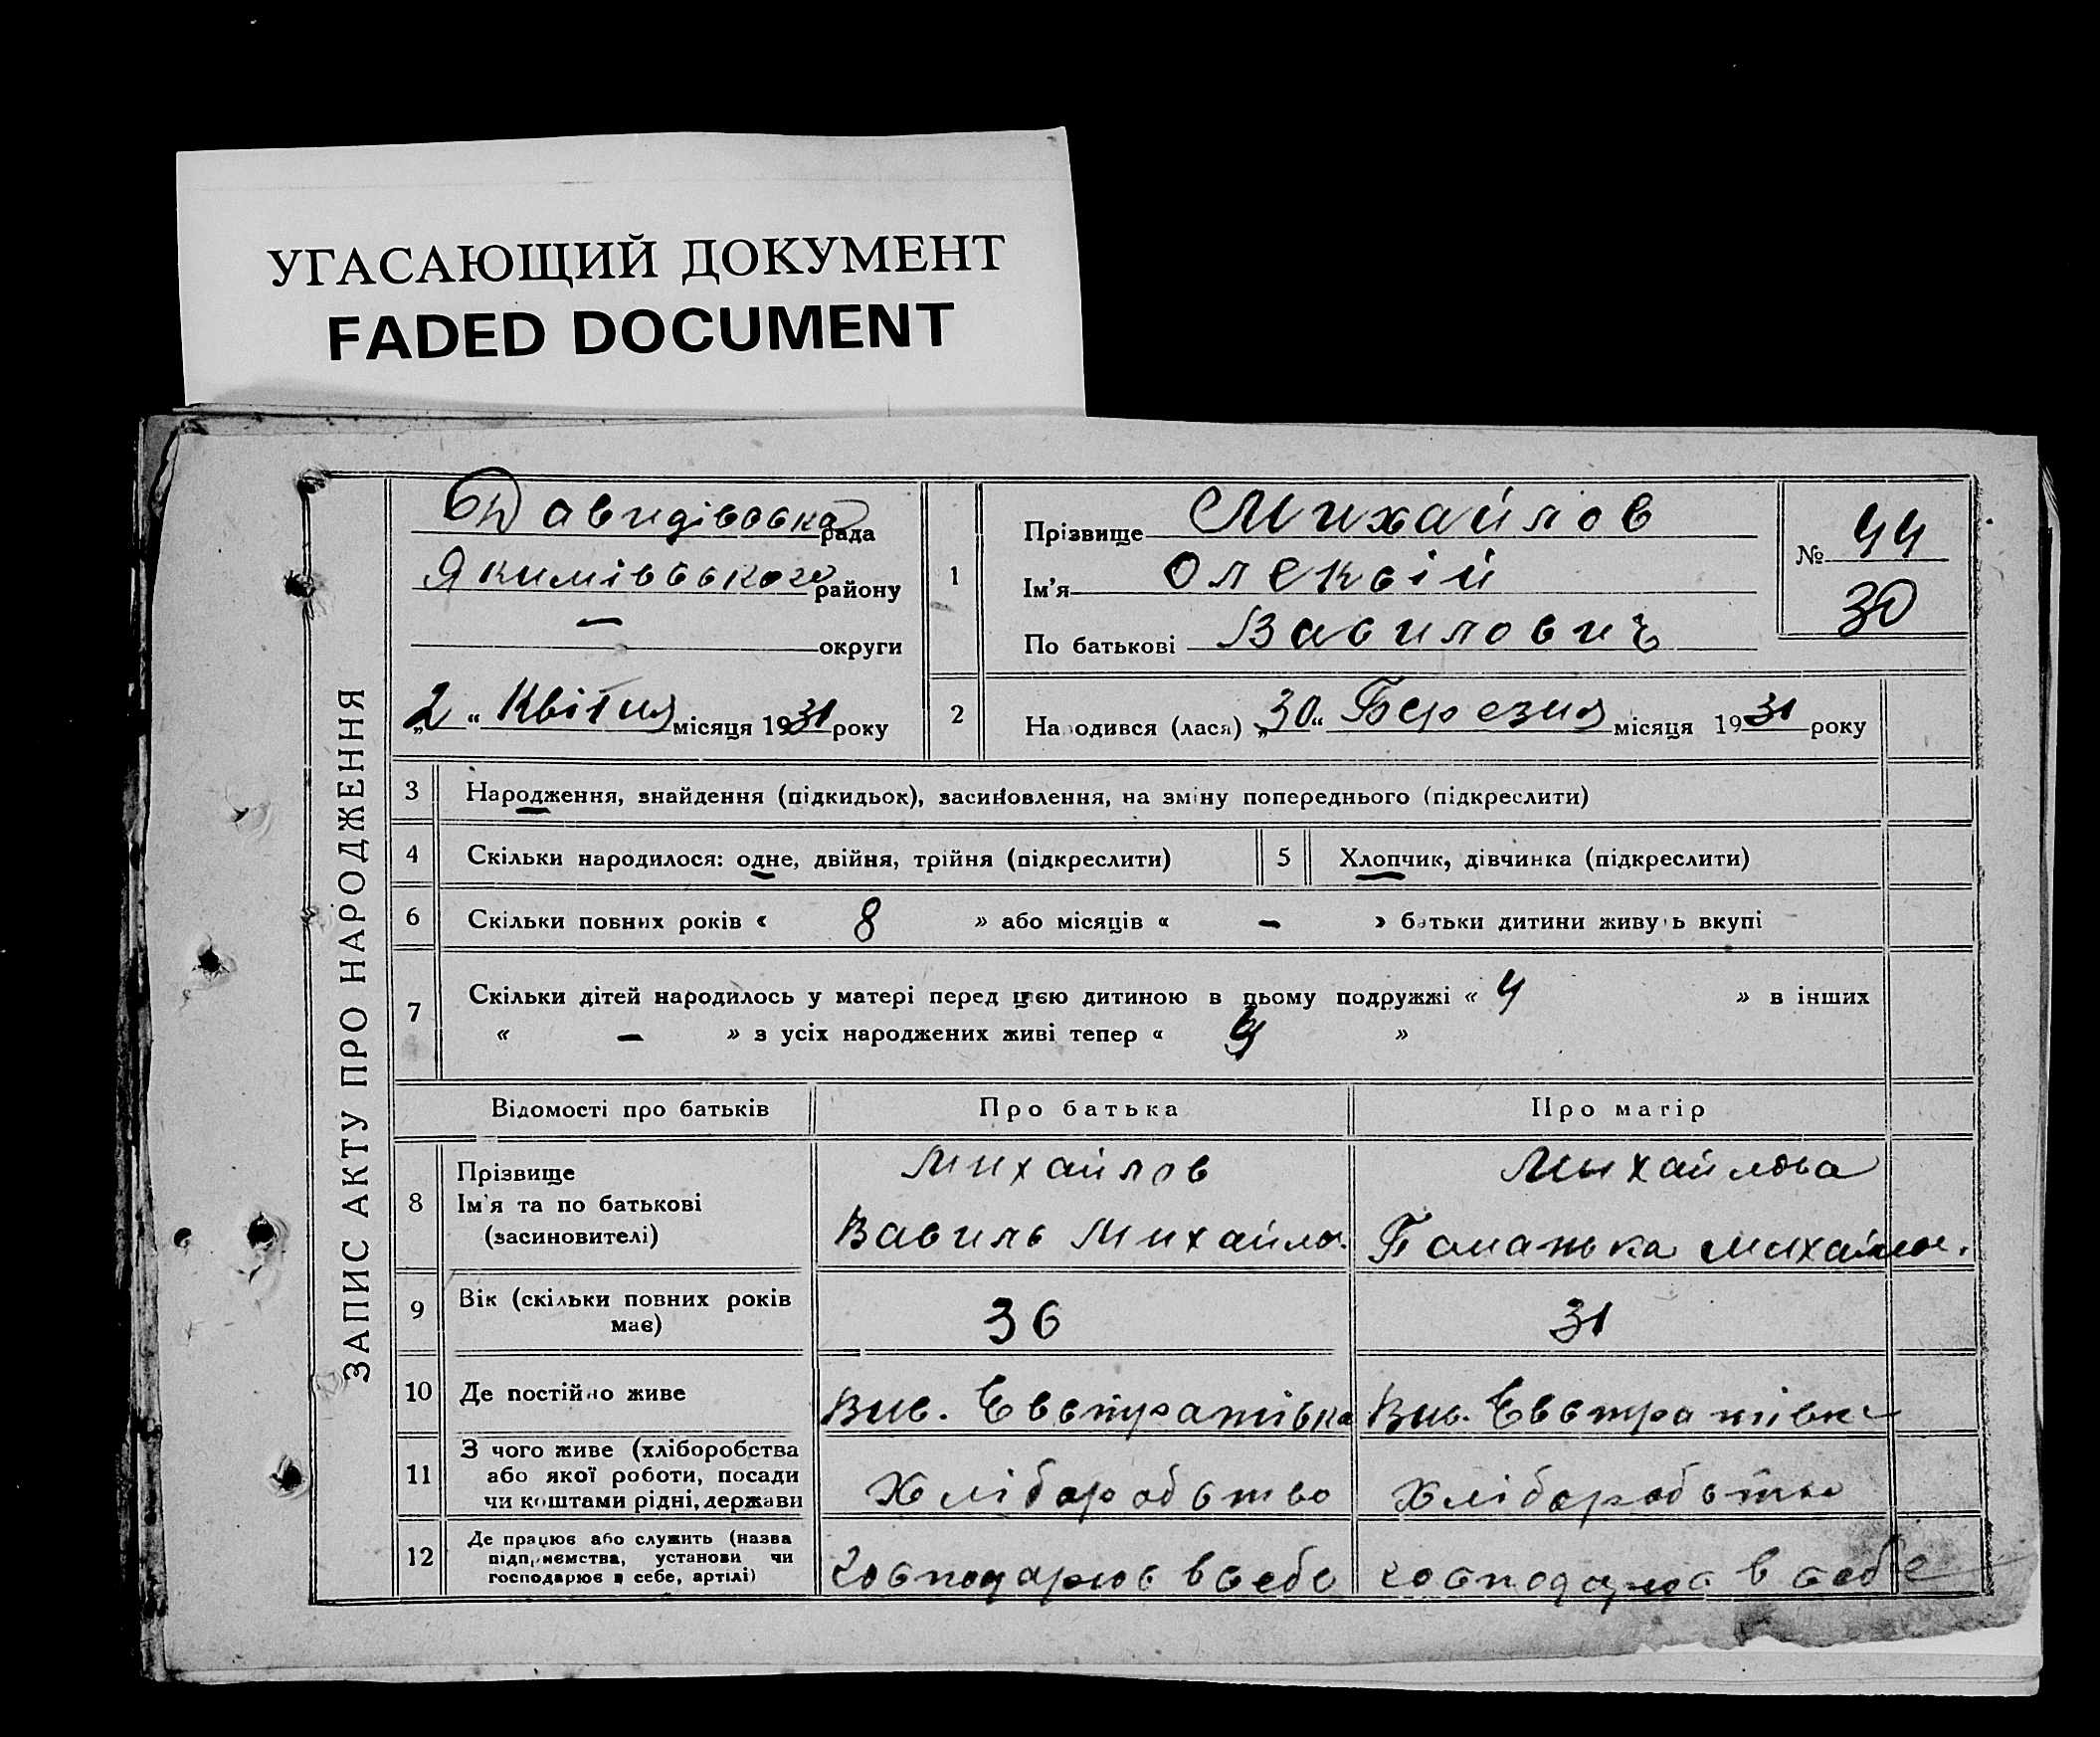 УГАСАЮЩИЙ ДОКУМЕНТ
FADED DOCUMENT
ЗАПИС АКТУ ПРО НАРОДЖЕННЯ
Давидівська рада
Якимівського району
— округи
„2“ Квітня місяця 1931 року
1
Прізвище Михайлов
Ім'я Олексій
По батькові Вавилович
№ 44
30
2 Народився (лася) „30“ Березня місяця 1931 року
3 Народження, знайдення (підкидьок), засиновлення, на зміну попереднього (підкреслити)
4 Скільки народилося: одне, двійня, трійня (підкреслити)
5 Хлопчик, дівчинка (підкреслити)
6 Скільки повних років « 8 » або місяців « – » батьки дитини живуть вкупі
7 Скільки дітей народилось у матері перед цією дитиною в цьому подружжі « 4 » в інших
« – » з усіх народжених живі тепер « »
Відомості про батьків Про батька Про матір
8 Прізвище
Ім'я та по батькові
(засиновителі)
Михайлов
Вавиль Михайло.
Михайлова
Михайло.
9 Вік (скільки повних років
має)
36
31
10 Де постійно живе
Вис. Євстратівка
Вис. Євстратівка
11 З чого живе (хліборобства
або якої роботи, посади
чи коштами рідні, держави
Хліборобство
Хліборобство
12 Де працює або служить (назва
підприємства, установи чи
господарює в себе, артілі)
господарює в себе
господарює в себе